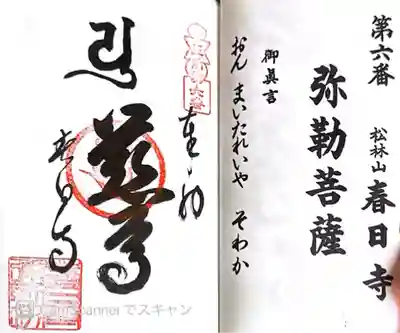 第六番
松林山 春日寺
弥勒菩薩
御真言
おん まいたれいや そわか
奉拝
慈尊
春日寺
でスキャン